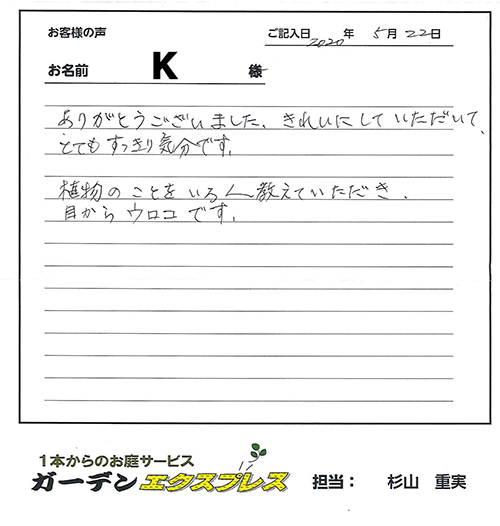 お客様の声
ご記入日 2020 年 5月 22日
お名前 K 様
ありがとうございました、きれいにしていただいて、
とてもすっきり気分です。
植物のことをいろ〳〵教えていただき、
目からウロコです。
1本からのお庭サービス
ガーデンエクスプレス 担当： 杉山 重実